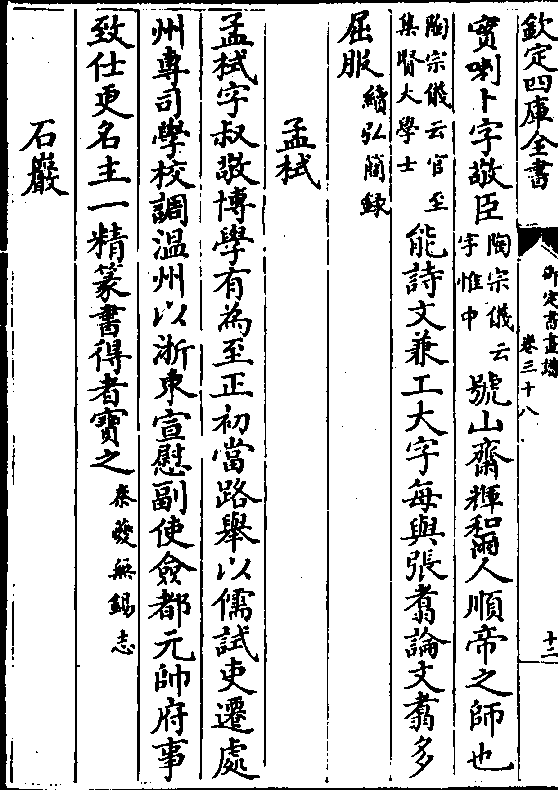 欽定四庫全書
御定書畫譜
卷三十八
十二
實喇卜字敬臣陶宗儀云字惟中號山齋輝和爾人順帝之師也
陶宗儀云官至集賢大學士能詩文兼工大字每與張翥論文翥多
屈服續弘簡錄
孟栻
孟栻字叔敬博學有為至正初當路舉以儒試吏遷處
州專司學校調溫州以浙東宣慰副使僉都元帥府事
致仕更名主一精篆書得者寶之秦夔無錫志
石巖